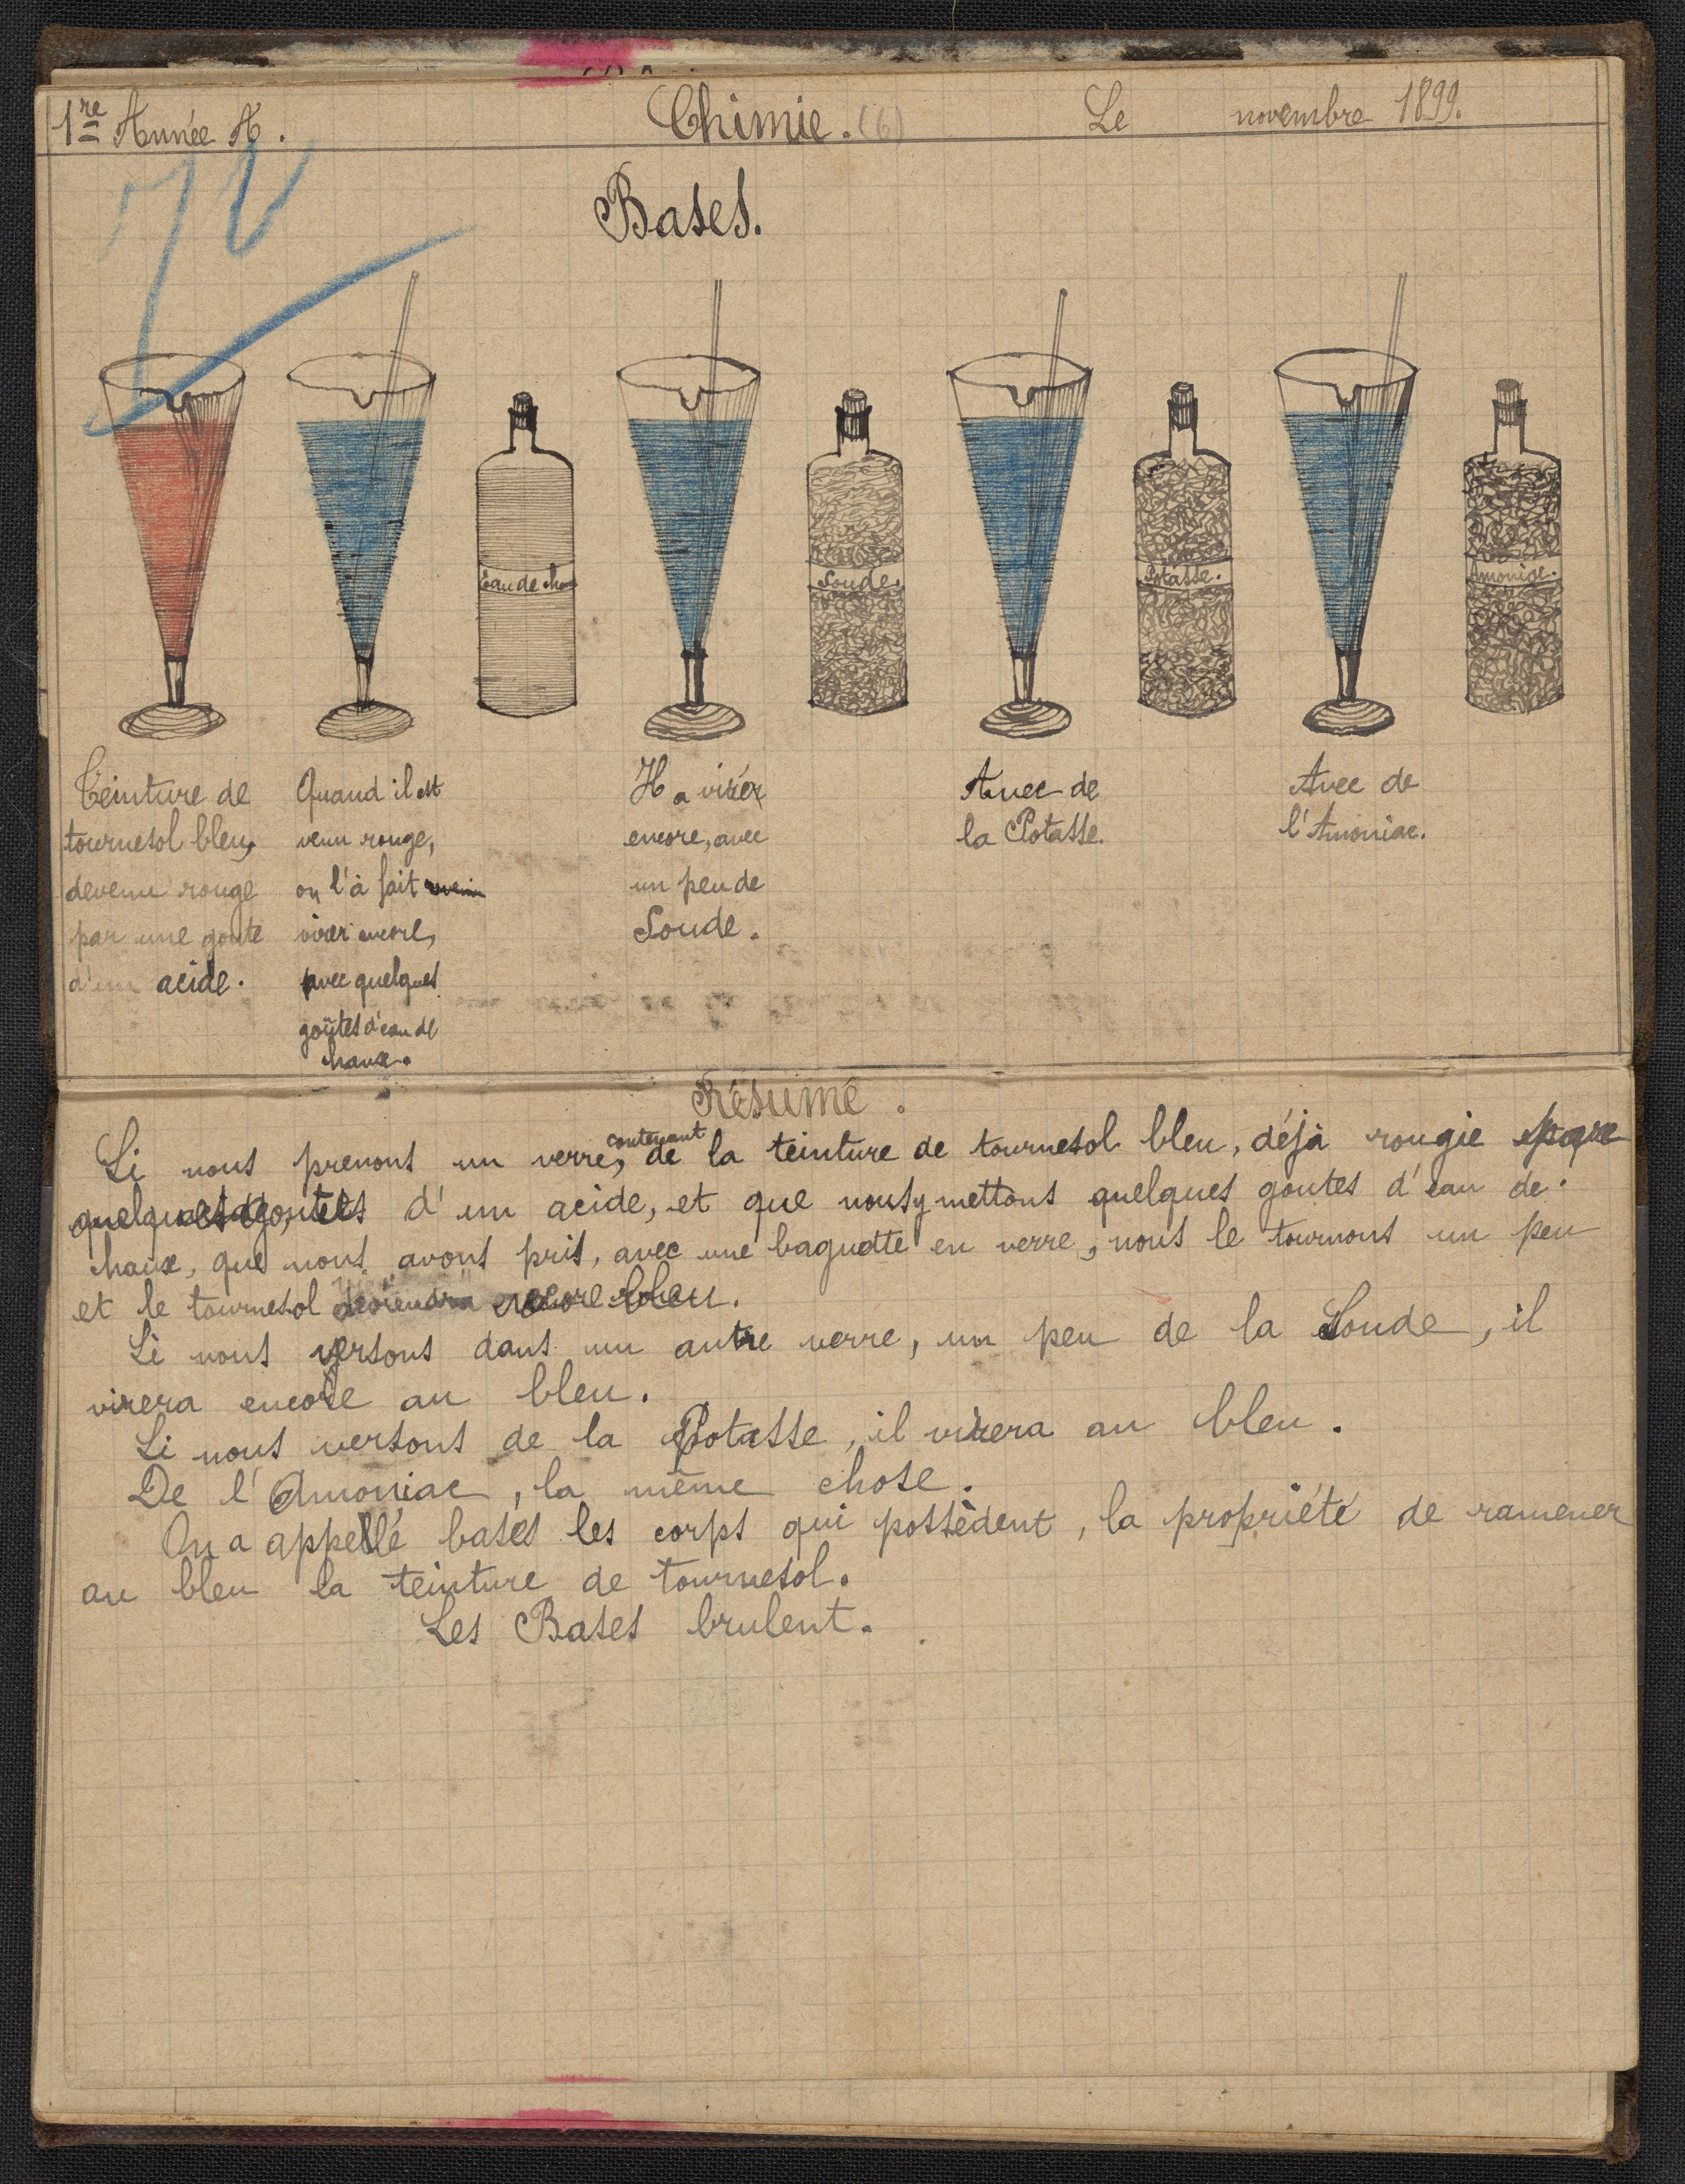 1re Année A.
Chimie. (6)
Le novembre 1899.
Bases.
Eau de chaux
Soude.
Potasse.
Amoniac.
Teinture de
tournesol bleu,
devenu rouge
par une goute
d'un acide.
Quand il est
venu rouge,
on l'à fait revenir
virer encore,
avec quelques
goûtes d'eau de
chaux.
Il a virer
encore, avec
un peu de
Soude.
Avec de
la Potasse.
Avec de
l'Amoniac.
Résumé.
Si nous prenons un verre, contenant de la teinture de tournesol bleu, déjà rougie par
quelques goutes d'un acide, et que nous y mettons quelques goutes d'eau de
chaux, que nous avons pris, avec une baguette en verre, nous le tournons un peu
et le tournesol deviendra encore bleu.
Si nous versons dans un autre verre, un peu de la Soude, il
virera encore au bleu.
Si nous versons de la Potasse, il virera au bleu.
De l'Amoniac, la même chose.
On a appellé bases les corps qui possèdent, la propriété de ramener
au bleu la teinture de tournesol.
Les Bases brulent.